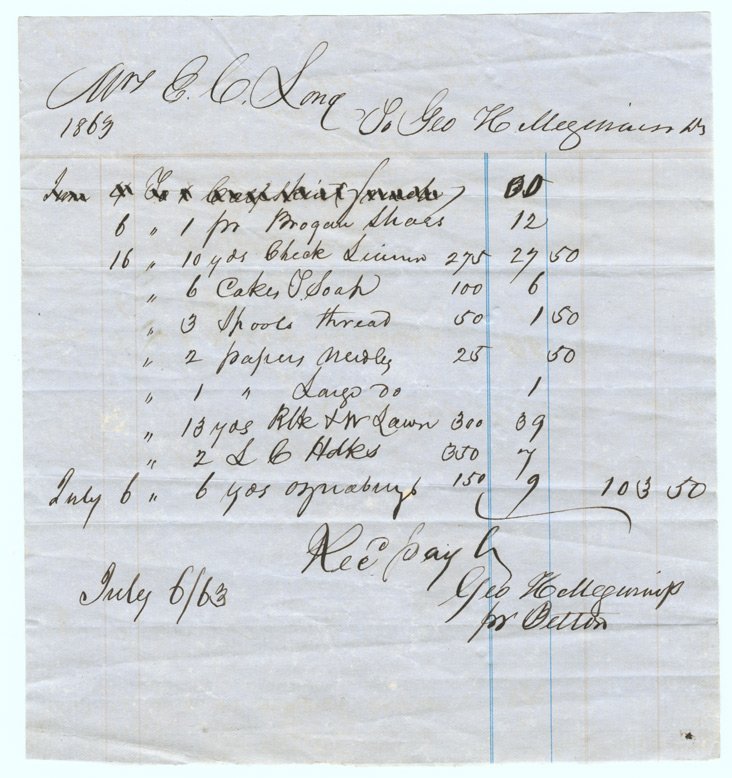 Mrs E. C. Long
1863 To Geo H Meginniss Dr
June
6 " 1 pr Brogan Shoes 12
16 " 10 yds Check Linnen 275 27 50
" 6 Cakes T. Soap 100 6
" 3 Spools thread 50 1 50
" 2 papers needles 25 50
" 1 " Large do 1
" 13 yds Blk & W Lawn 300 39
" 2 L C Hdkfs 350 7
July 6 " 6 yds osnaburgs 150 9 103 50
Recd payt
July 6/63
Geo H Meginniss
pr Betton